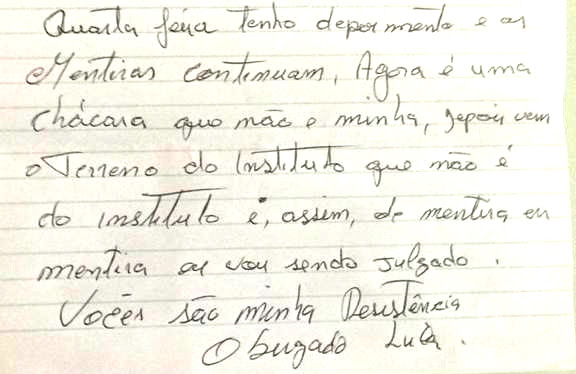 Quarta feira tenho depoimento e as
Mentiras continuam, Agora é uma
chácara que não é minha, depois vem
o Terreno do Instituto que não é
do instituto e, assim, de mentira em
mentira eu vou sendo julgado.
Vocês são minha Resistência
Obrigado Lula.